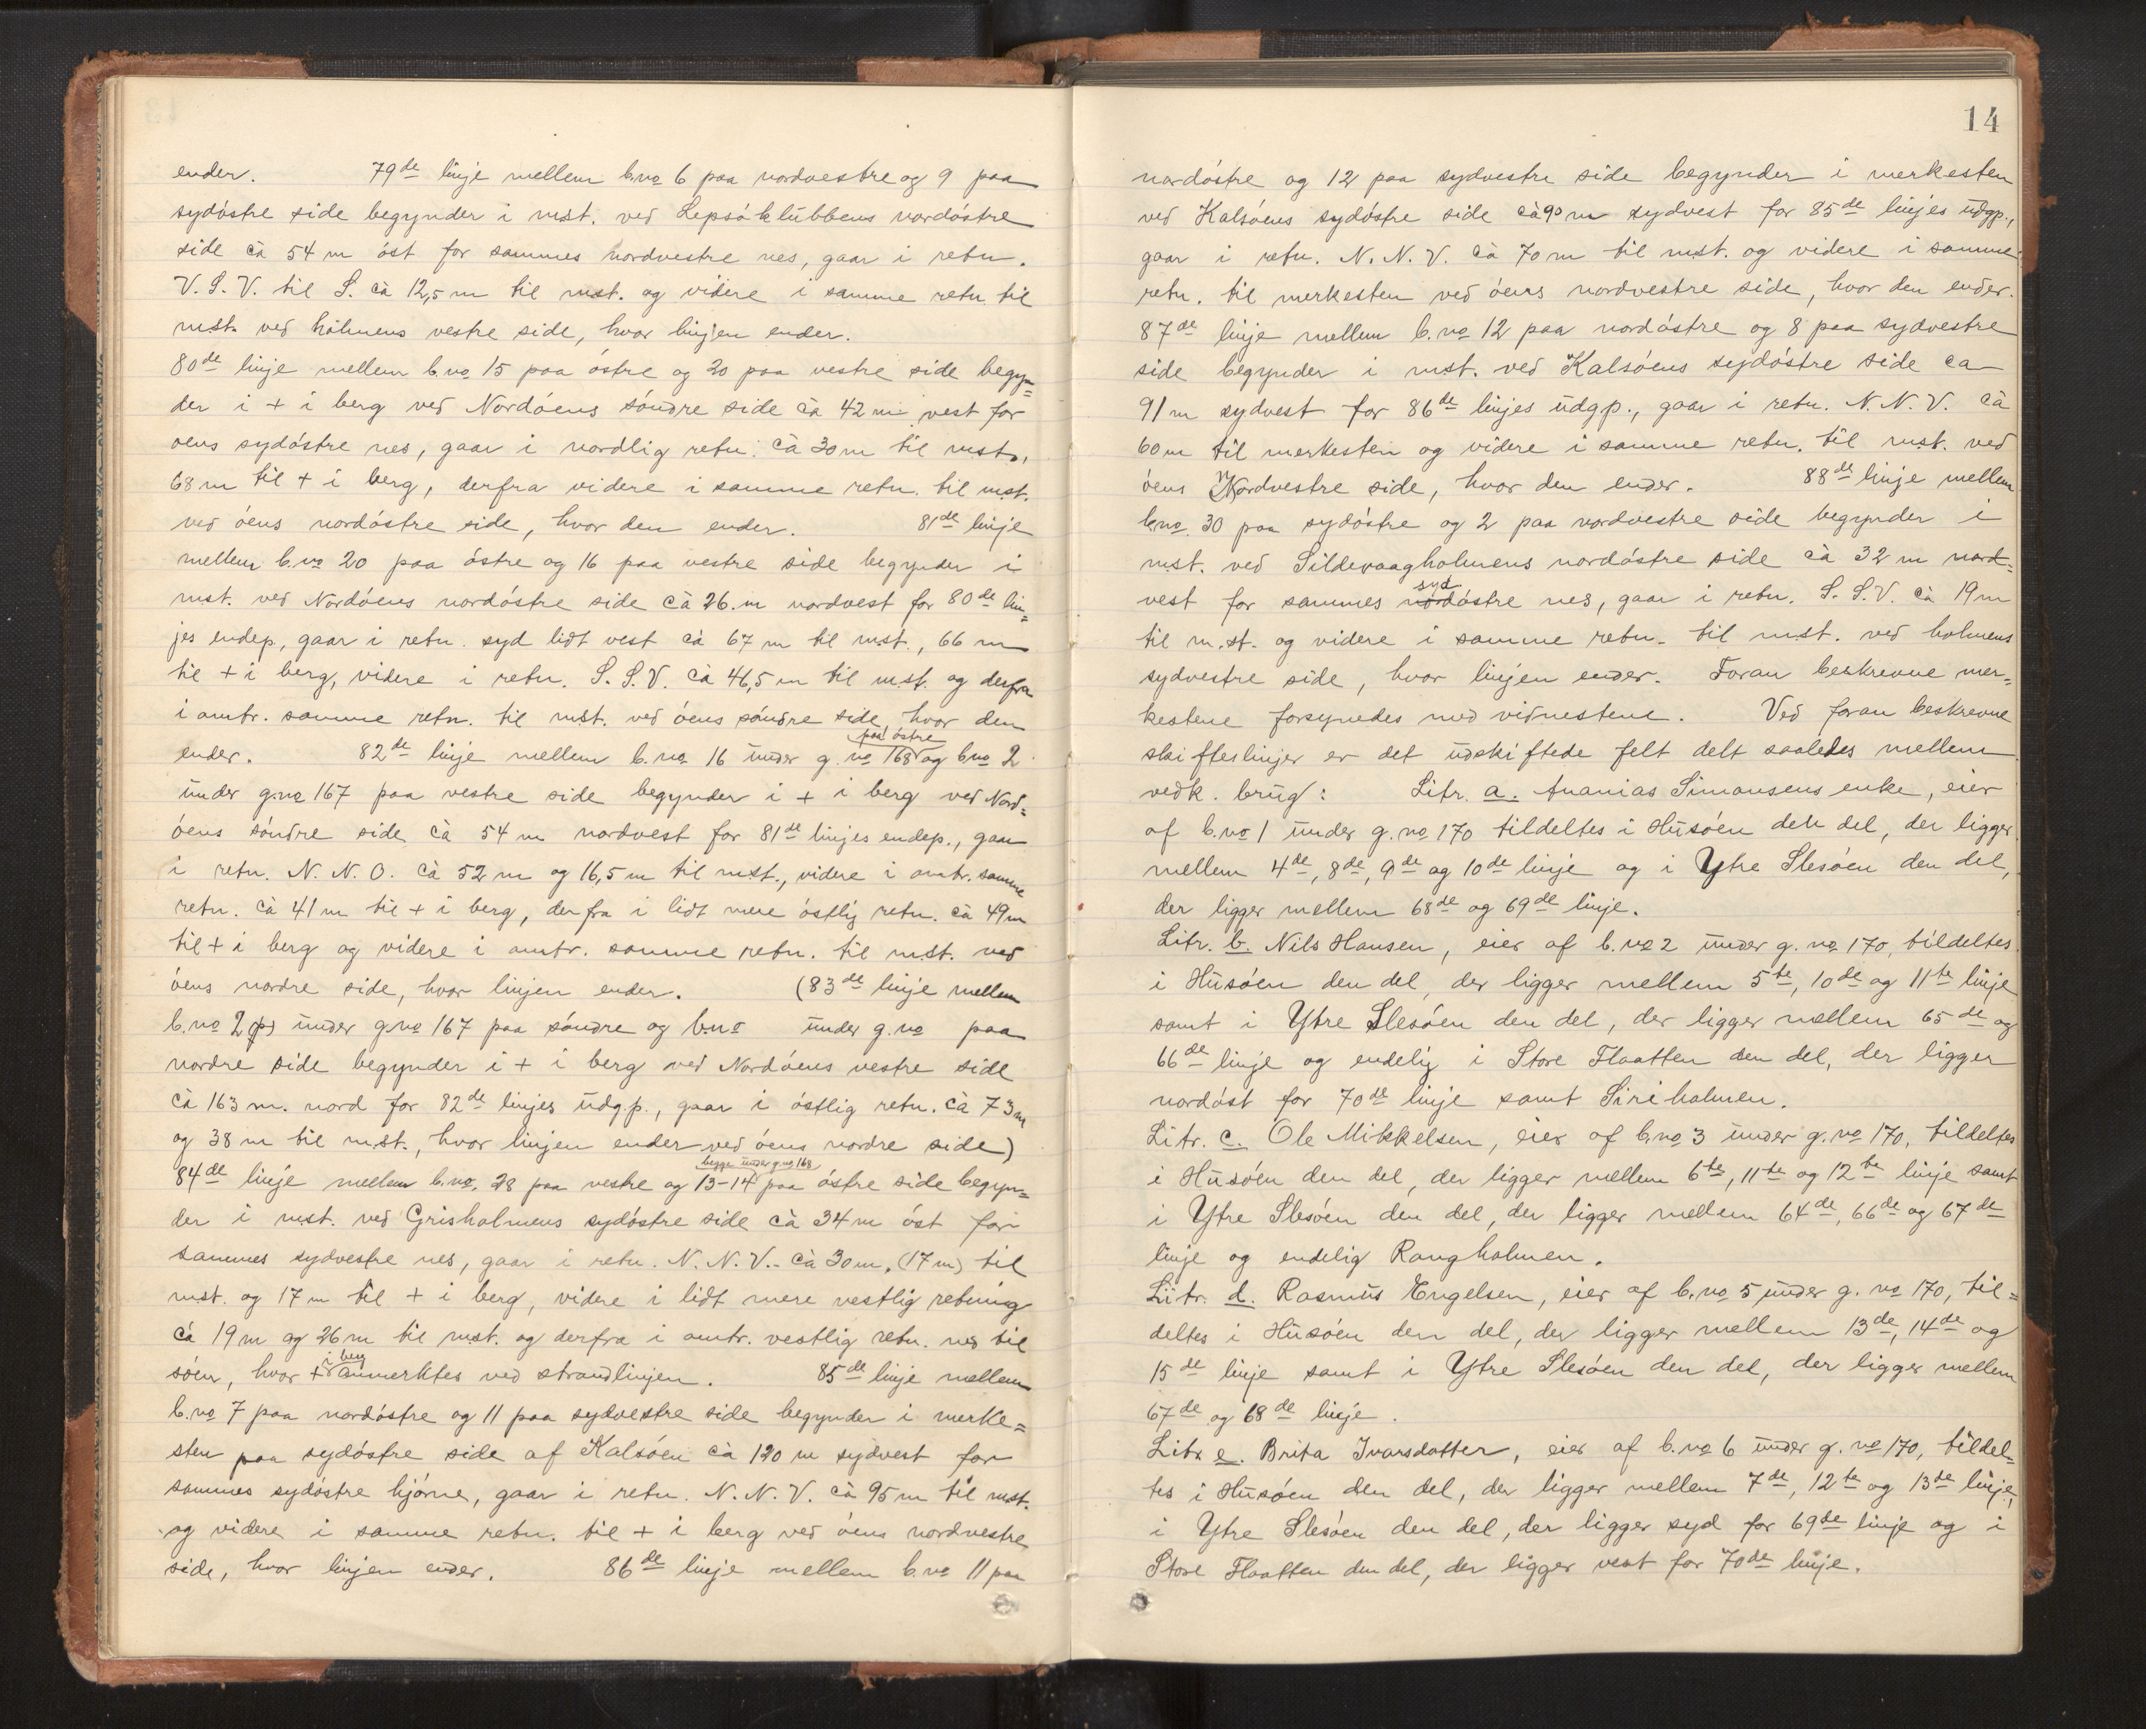 ender. 79de linje mellem b.no 6 paa nordvestre og 9 paa
sydóstre side begynder i mst. ved Lepsóklubbens nordóstre
side cà 54 m óst for sammes nordvestre nes, gaar i retn.
V.S.V. til S. cà 12,5 m til mst. og videre i samme retn til
mst. ved holmens vestre side, hvor linjen ender.
80de linje mellem b.no 15 paa óstre og 20 paa vestre side begyn=
der i + i berg ved Nordóens sóndre side cà 42 m vest for
óens sydóstre nes, gaar i nordlig retn. cà 30 m til mst.,
68 m til + i berg, derfra videre i samme retn. til mst.
ved óens nordóstre side, hvor den ender. 81de linje
mellem b.no 20 paa óstre og 16 paa vestre side begynder i
mst. ved Nordóens nordóstre side cà 26 m nordvest for 80de lin=
jes endep., gaar i retn. syd lidt vest cà 67 m til mst., 66 m
til + i berg, videre i retn. S.S.V. cà 46,5 m til mst. og derfra
i omtr. samme retn. til mst. ved óens sóndre side, hvor den
paa óstre
ender. 82de linje mellem b.no 16 under g.no 168 og b.no 2
under g.no 167 paa vestre side begynder i + i berg ved Nord=
óens sóndre side cà 54 m nordvest for 81de linjes endep., gaar
i retn. N.N.O. cà 52 m og 16,5 m til mst., videre i omtr. samme
retn. cà 41 m til + i berg, derfra i lidt mere óstlig retn. cà 49 m
til + i berg og videre i omtr. samme retn. til mst. ved
óens nordre side, hvor linjen ender. (83de linje mellem
b.no 2 under g.no 167 paa sóndre og b.no under g.no paa
nordre side begynder i + i berg ved Nordóens vestre side
cà 163 m. nord for 82de linjes udg.p., gaar i óstlig retn. cà 73 m
og 38 m til mst., hvor linjen ender ved óens nordre side)
begge under g.no 168
84de linje mellem b.no. 28 paa vestre og 13-14 paa óstre side begyn=
der i mst. ved Grisholmens sydóstre side cà 34 m óst for
sammes sydvestre nes, gaar i retn. N.N.V. cà 30 m, (17 m) til
mst. og 17 m til + i berg, videre i lidt mere vestlig retning
cà 19 m og 26 m til mst. og derfra i omtr. vestlig retn. ned til
i berg
sóen, hvor + anmerktes ved strandlinjen. 85de linje mellem
b.no 7 paa nordóstre og 11 paa sydvestre side begynder i merke=
sten paa sydóstre side af Kalsóen cà 120 m sydvest for
sammes sydóstre hjórne, gaar i retn. N.N.V. cà 95 m til mst.
og videre i samme retn. til + i berg ved óens nordvestre
side, hvor linjen ender. 86de linje mellem b.no 11 paa
14
nordóstre og 12 paa sydvestre side begynder i merkesten
ved Kalsóens sydóstre side cà 90 m sydvest for 85de linjes udgp.,
gaar i retn. N.N.V. cà 70 m til mst. og videre i samme
retn. til merkesten ved óens nordvestre side, hvor den ender.
87de linje mellem b.no 12 paa nordóstre og 8 paa sydvestre
side begynder i mst. ved Kalsóens sydóstre side ca
91 m sydvest for 86de linjes udgp., gaar i retn. N.N.V. cà
60 m til merkesten og videre i samme retn. til mst. ved
óens Nordvestre side, hvor den ender. 88de linje mellem
b.no. 30 paa sydóstre og 2 paa nordvestre side begynder i
mst. ved Sildevaagholmens nordóstre side cà 32 m nord=
syd
vest for sammes nordóstre nes, gaar i retn. S.S.V. cà 19 m
til m.st. og videre i samme retn. til mst. ved holmens
sydvestre side, hvor linjen ender. Foran beskrevne mer=
kestene forsynedes med vidnestene. Ved foran beskrevne
skifteslinjer er det udskiftede felt delt saaledes mellem
vedk. brug: Litr. a. Ananias Simonsens enke, eier
af b.no 1 under g.no 170 tildeltes i Husóen den del, der ligger
mellem 4de, 8de, 9de og 10de linje og i Ytre Slesóen den del,
der ligger mellem 68de og 69de linje.
Litr. b. Nils Hansen, eier af b.no 2 under g.no 170, tildeltes
i Husóen den del, der ligger mellem 5te, 10de og 11te linje
samt i Ytre Slesóen den del, der ligger mellem 65de og
66de linje og endelig i Store Flaatten den del, der ligger
nordóst for 70de linje samt Siriholmen.
Litr. c. Ole Mikkelsen, eier af b.no 3 under g.no 170, tildeltes
i Husóen den del, der ligger mellem 6te, 11te og 12te linje samt
i Ytre Slesóen den del, der ligger mellem 64de, 66de og 67de
linje og endelig Rongholmen.
Litr. d. Rasmus Engelsen, eier af b.no 5 under g.no 170, til=
deltes i Husóen den del, der ligger mellem 13de, 14de og
15de linje samt i Ytre Slesóen den del, der ligger mellem
67de og 68de linje.
Litr e. Brita Ivarsdatter, eier af b.no 6 under g.no 170, tildel=
tes i Husóen den del, der ligger mellem 7de, 12te og 13de linje,
i Ytre Slesóen den del, der ligger syd for 69de linje og i
Store Flaatten den del, der ligger vest for 70de linje.